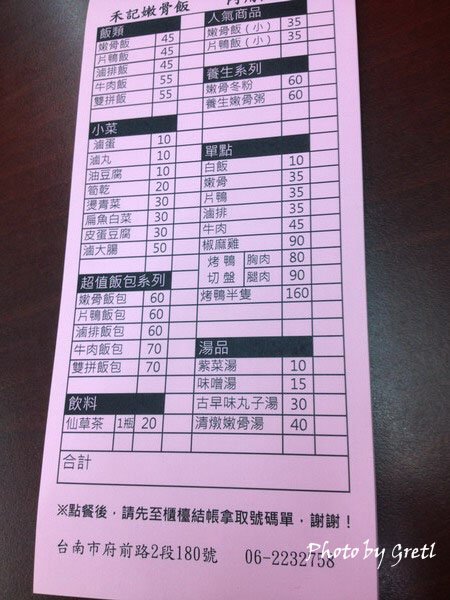 禾記嫩骨飯
飯類
嫩骨飯 45
片鴨飯 45
滷排飯 45
牛肉飯 55
雙拼飯 55
小菜
滷蛋 10
滷丸 10
油豆腐 10
筍乾 20
燙青菜 30
扁魚白菜 30
皮蛋豆腐 30
滷大腸 50
超值飯包系列
嫩骨飯包 60
片鴨飯包 60
滷排飯包 60
牛肉飯包 70
雙拼飯包 70
飲料
仙草茶 1瓶 20
人氣商品
嫩骨飯(小) 35
片鴨飯(小) 35
養生系列
嫩骨冬粉 60
養生嫩骨粥 60
單點
白飯 10
嫩骨 35
片鴨 35
滷排 35
牛肉 45
椒麻雞 90
烤鴨 胸肉 80
切盤 腿肉 90
烤鴨半隻 160
湯品
紫菜湯 10
味噌湯 15
古早味丸子湯 30
清燉嫩骨湯 40
合計
※點餐後,請先至櫃檯結帳拿取號碼單,謝謝!
台南市府前路2段180號 06-2232758
Photo by Gretl